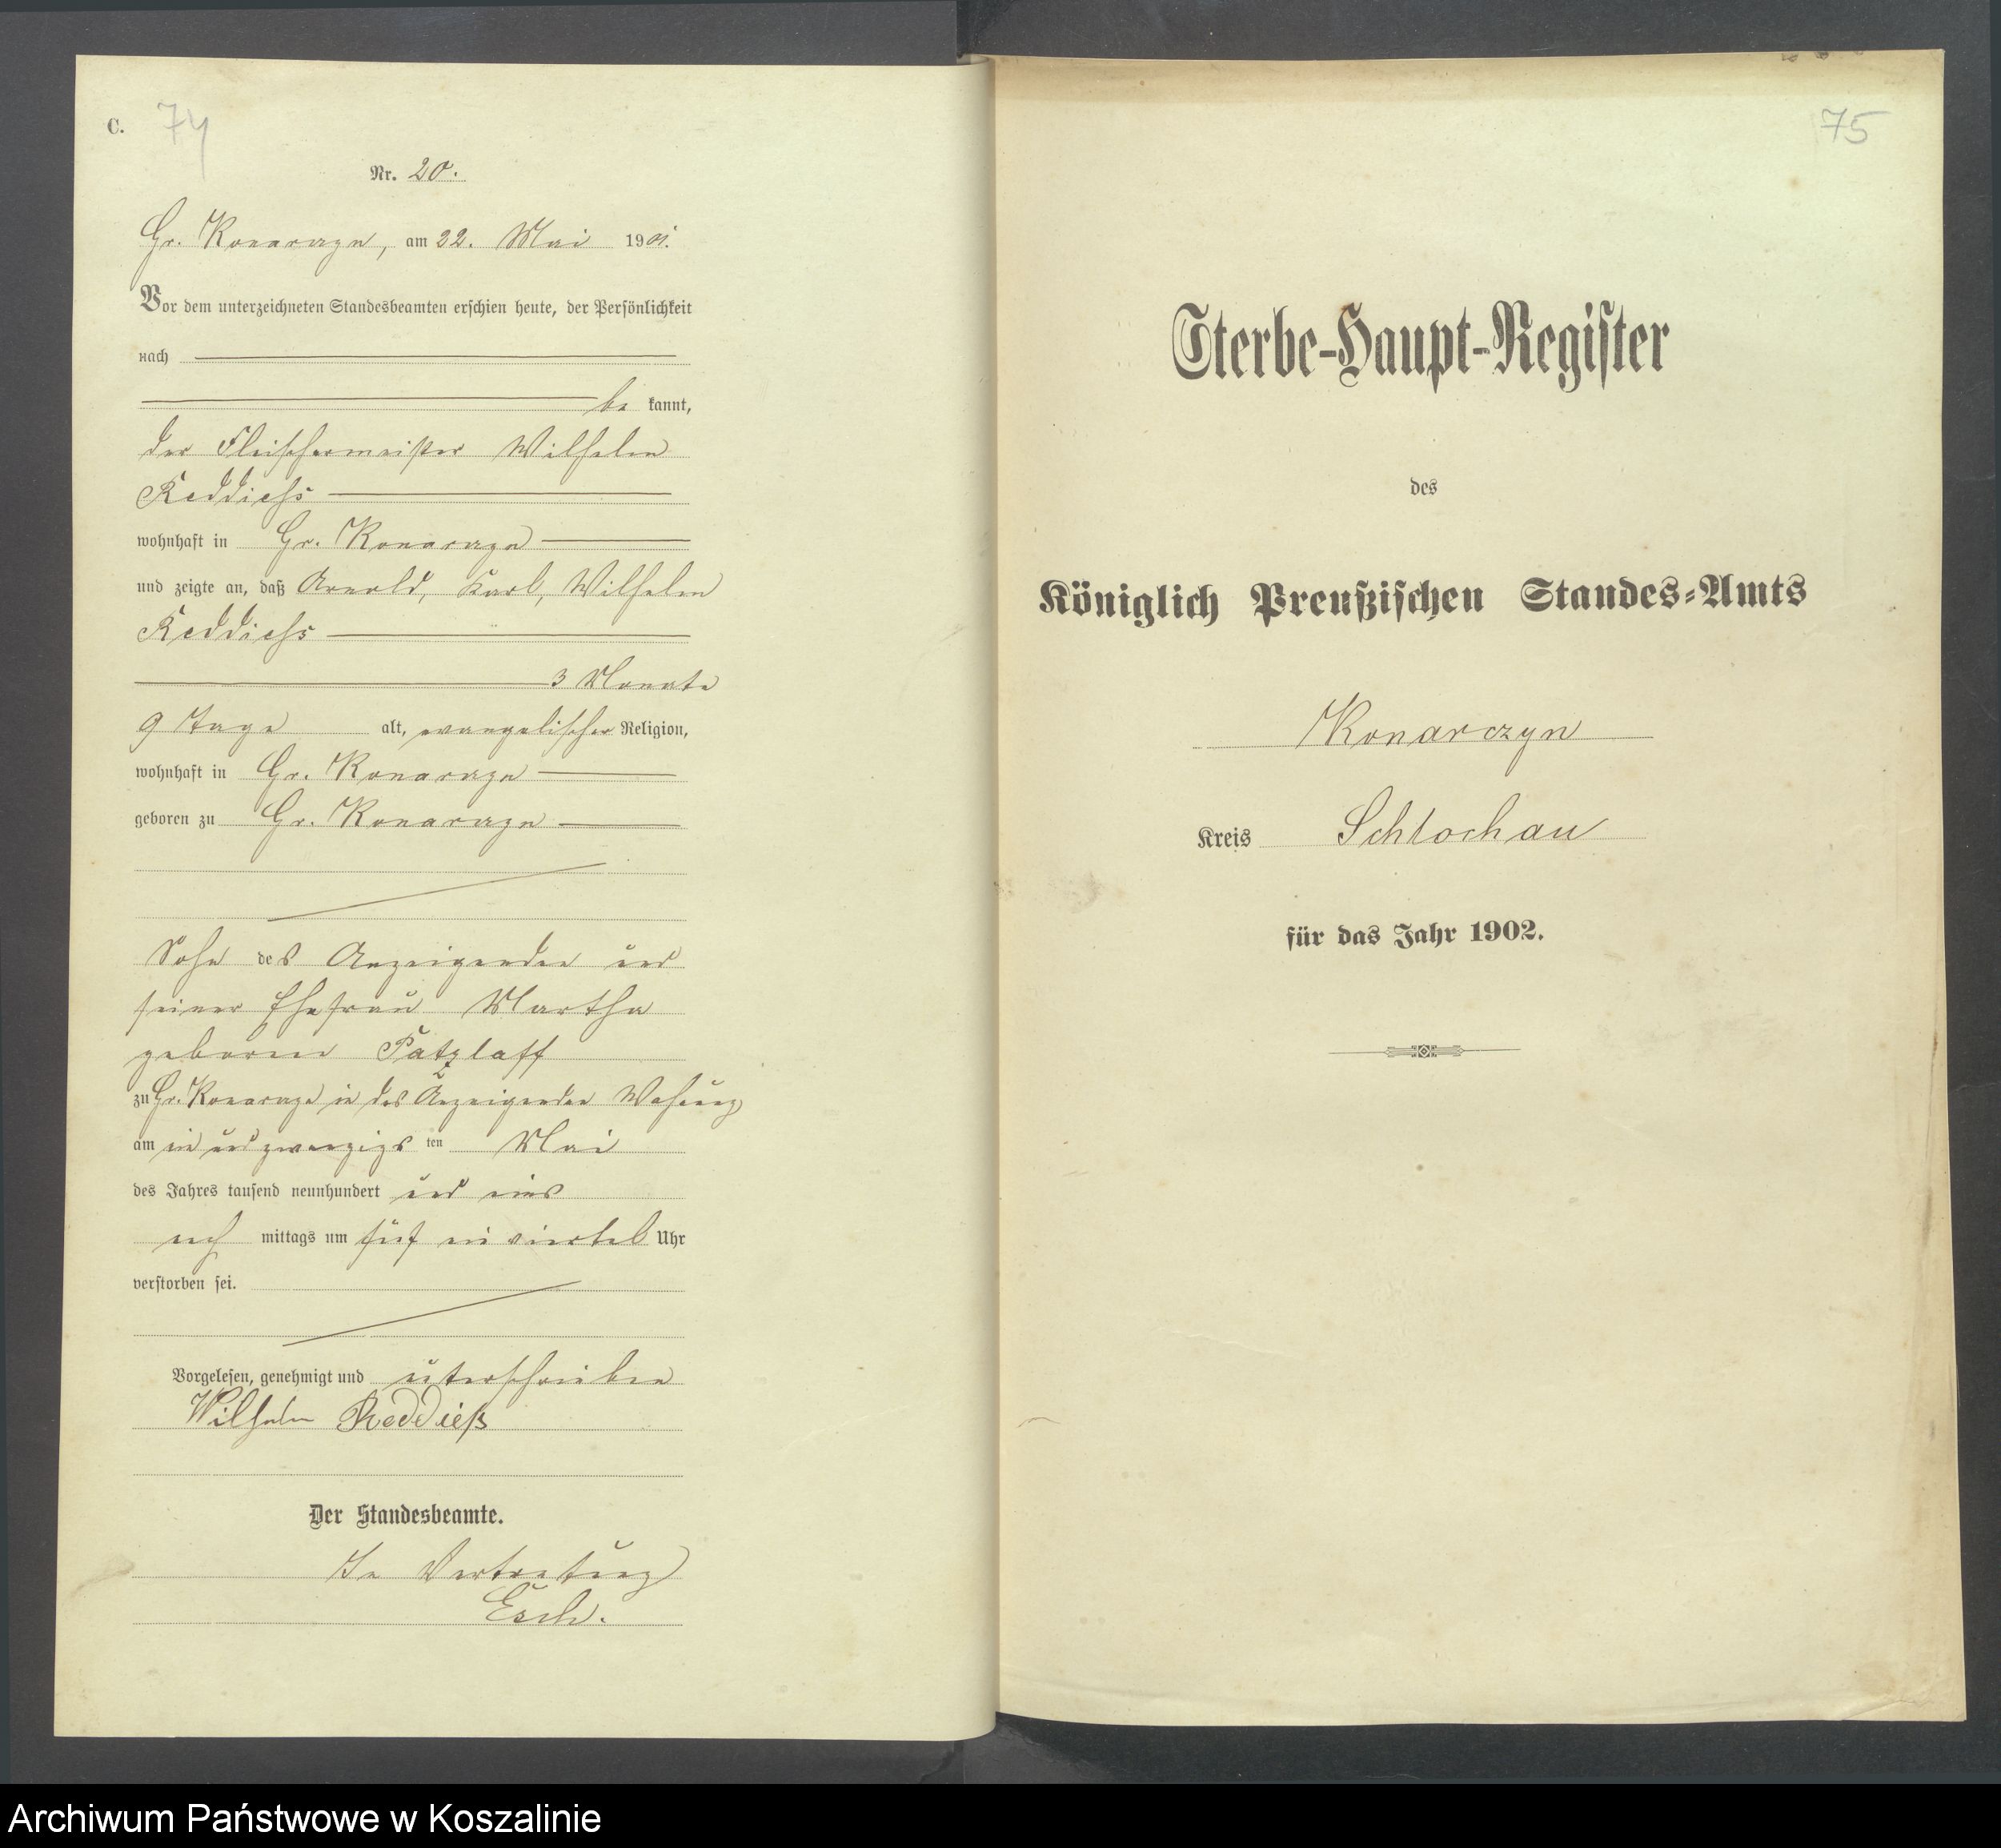 C.
74
Nr. 20.
Gr. Konarczyn, am 22. Mai 1901.
Vor dem unterzeichneten Standesbeamten erschien heute, der Persönlichkeit
nach
be kannt,
der Fleischermeister Wilhelm
Reddiess
wohnhaft in Gr. Konarczyn
und zeigte an, daß Arnold, Karl, Wilhelm
Reddiess
3 Monate
9 Tage alt, evangelischer Religion,
wohnhaft in Gr. Konarczyn
geboren zu Gr. Konarczyn
Sohn des Anzeigenden und
seiner Ehefrau Martha
geborene Patzlaff
zu Gr. Konarczyn in des Anzeigenden Wohnung
am ein und zwanzigs ten Mai
des Jahres tausend neunhundert und eins
nach mittags um fünf ein viertel Uhr
verstorben sei.
Vorgelesen, genehmigt und unterschrieben
Wilhelm Reddieß
Der Standesbeamte.
In Vertretung
Esch.
75
Sterbe-Haupt-Register
des
Königlich Preußischen Standes-Amts
Konarczyn
Kreis Schlochau
für das Jahr 1902.
Archiwum Państwowe w Koszalinie